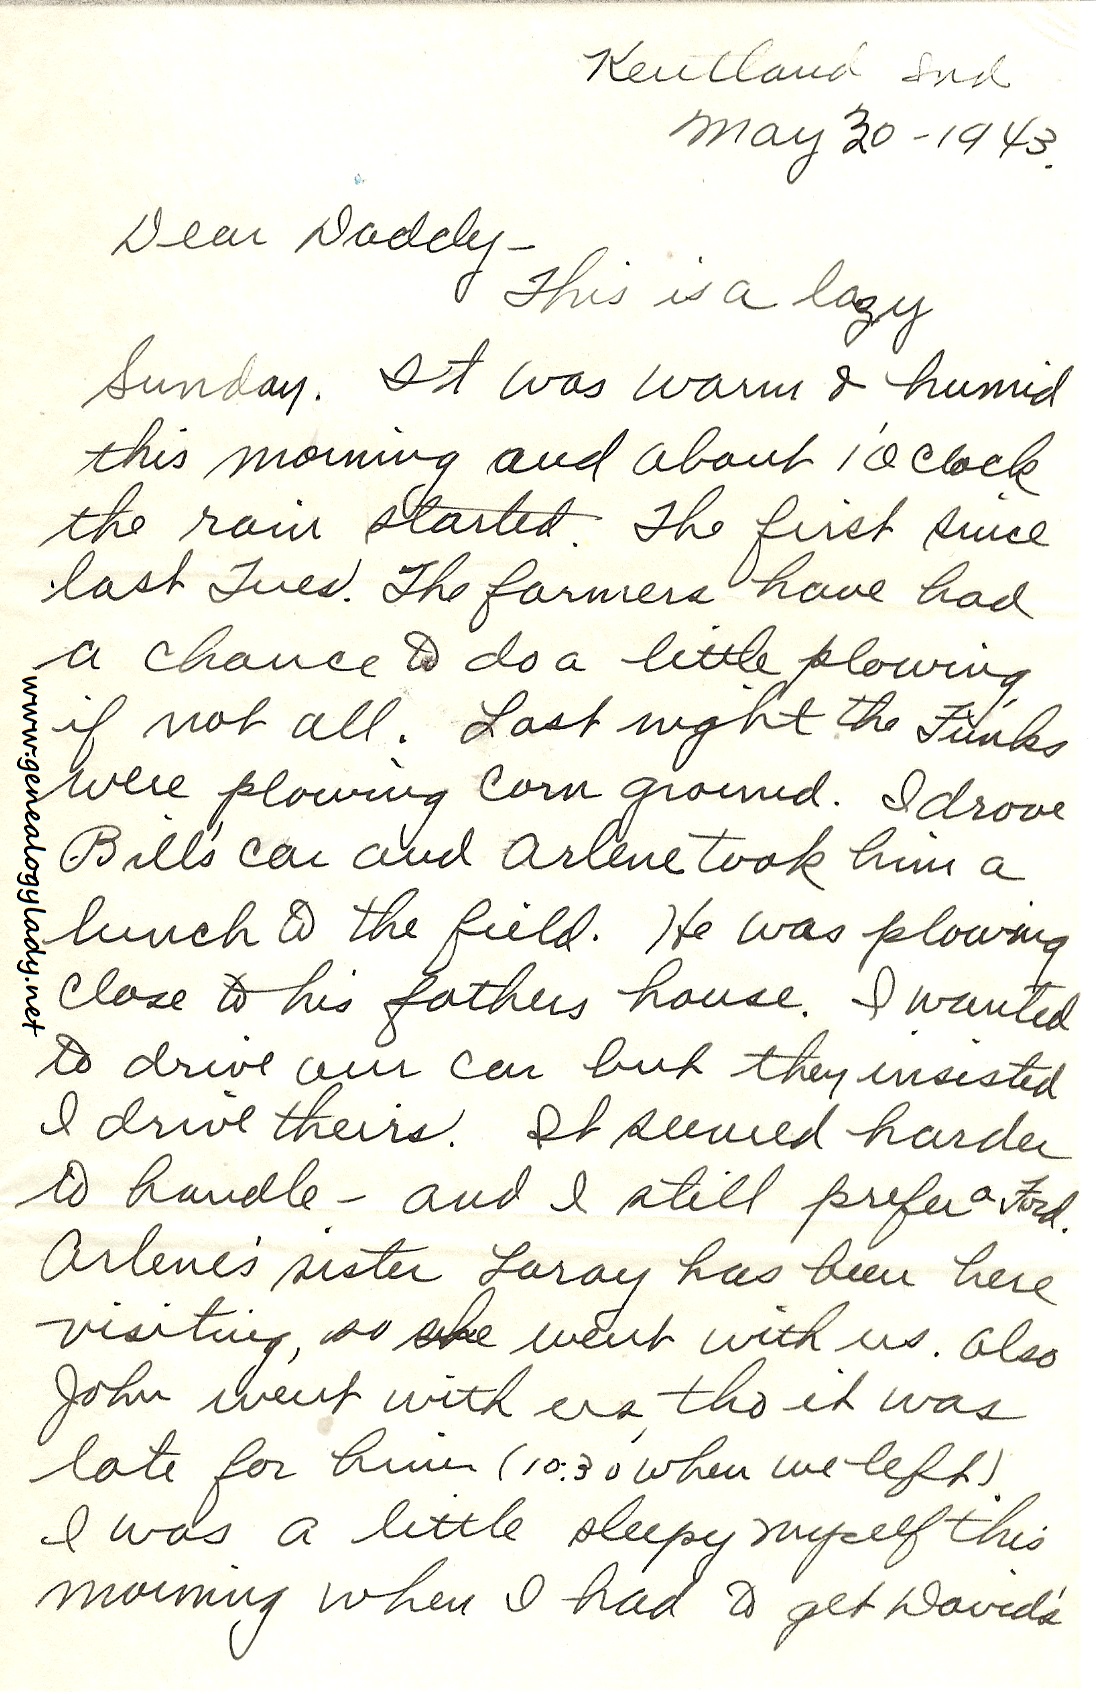 Kentland Ind
May 30 - 1943.
Dear Daddy -
This is a lazy
Sunday. It was warm & humid
this morning and about 1 o'clock
the rain started. The first since
last Tues. The farmers have had
a chance to do a little plowing
if not all. Last night the Funks
were plowing corn ground. I drove
Bill's car and Arlene took him a
lunch to the field. He was plowing
close to his fathers house. I wanted
to drive our car but they insisted
I drive theirs. It seemed harder
to handle - and I still prefer a Ford.
Arlene's sister Laray has been here
visiting, so she went with us. Also
John went with us, tho it was
late for him (10:30 when we left)
I was a little sleepy myself this
morning when I had to get David's
www.genealogylady.net